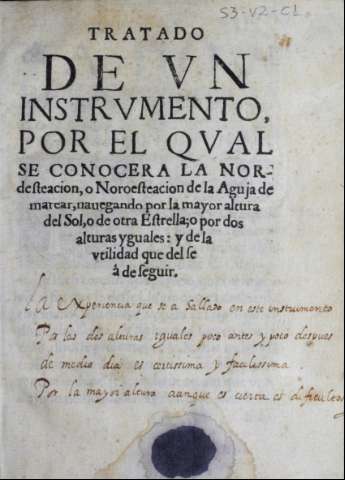 S3-V2-C1
TRATADO
DE VN
INSTRVMENTO,
POR EL QVAL
SE CONOCERA LA NOR-
desteacion, o Noroesteacion de la Aguja de
marear, nauegando por la mayor altura
del Sol, o de otra Estrella; o por dos
alturas yguales: y de la
vtilidad que del se
á de seguir.
La experiencia que se a Sallado en este instrumento
Por las dos alturas iguales poco antes y poco despues
de medio dia es certissima y facilissima.
Por la mayor altura aunque es cierta es